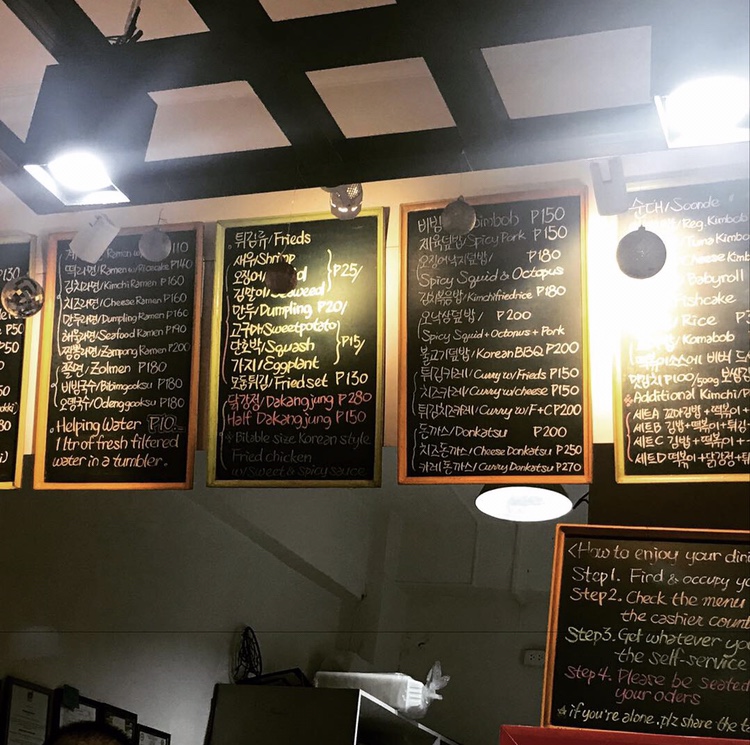 P130
P50
P50
Ramen w/ 110
떡라면/Ramen w/Ricecake P140
김치라면/Kimchi Ramen P160
치즈라면/Cheese Ramen P160
만두라면/Dumpling Ramen P160
해물라면/Seafood Ramen P190
짬뽕라면/Zampong Ramen P200
쫄면/Zolmen P180
비빔국수/Bibimgooksu P180
오뎅국수/Odengooksu P180
Helping Water P10.
1 ltr of fresh filtered
water in a tumbler.
튀김류/Frieds
새우/Shrimp
오징어/
김말이/Seaweed P25/
만두/Dumpling P20/
고구마/Sweetpotato
단호박/Squash P15/
가지/Eggplant
모둠튀김/Fried set P130
닭강정/Dakangjung P280
Half Dakangjung P150
*Bitable size Korean style
Fried chicken
w/sweet & spicy sauce
비빔 bimbob P150
제육덮밥/Spicy Pork P150
오징어낙지덮밥/ P180
Spicy Squid & Octopus
김치볶음밥/Kimchifriedrice P180
오낙삼덮밥/ P200
Spicy Squid+Octopus+Pork
불고기덮밥/Korean BBQ P200
튀김카레/Curry w/Frieds P150
치즈카레/Curry w/cheese P150
튀김치카레/Curry w/F+C P200
돈까스/Donkatsu P200
치즈돈까스/Cheese Donkatsu P250
카레돈까스/Curry Donkatsu P270
순대/Soonde
/Reg. Kimbob
Tuna Kimbob
Cheese Kimbob
Babyroll
Fishcake
Rice P3
Komabob
P100/500g
Additional Kimchi/P
세트A 꼬마김밥+떡볶이+
세트B 김밥+떡볶이+튀김
세트C 김밥+떡볶이+
세트D 떡볶이+닭강정+튀
<How to enjoy your dini
Step1. Find & occupy yo
Step2. Check the menu
the cashier count
Step3. Get whatever yo
the self-service
Step4. Please be seated
your oders
☆if you're alone, plz share the t